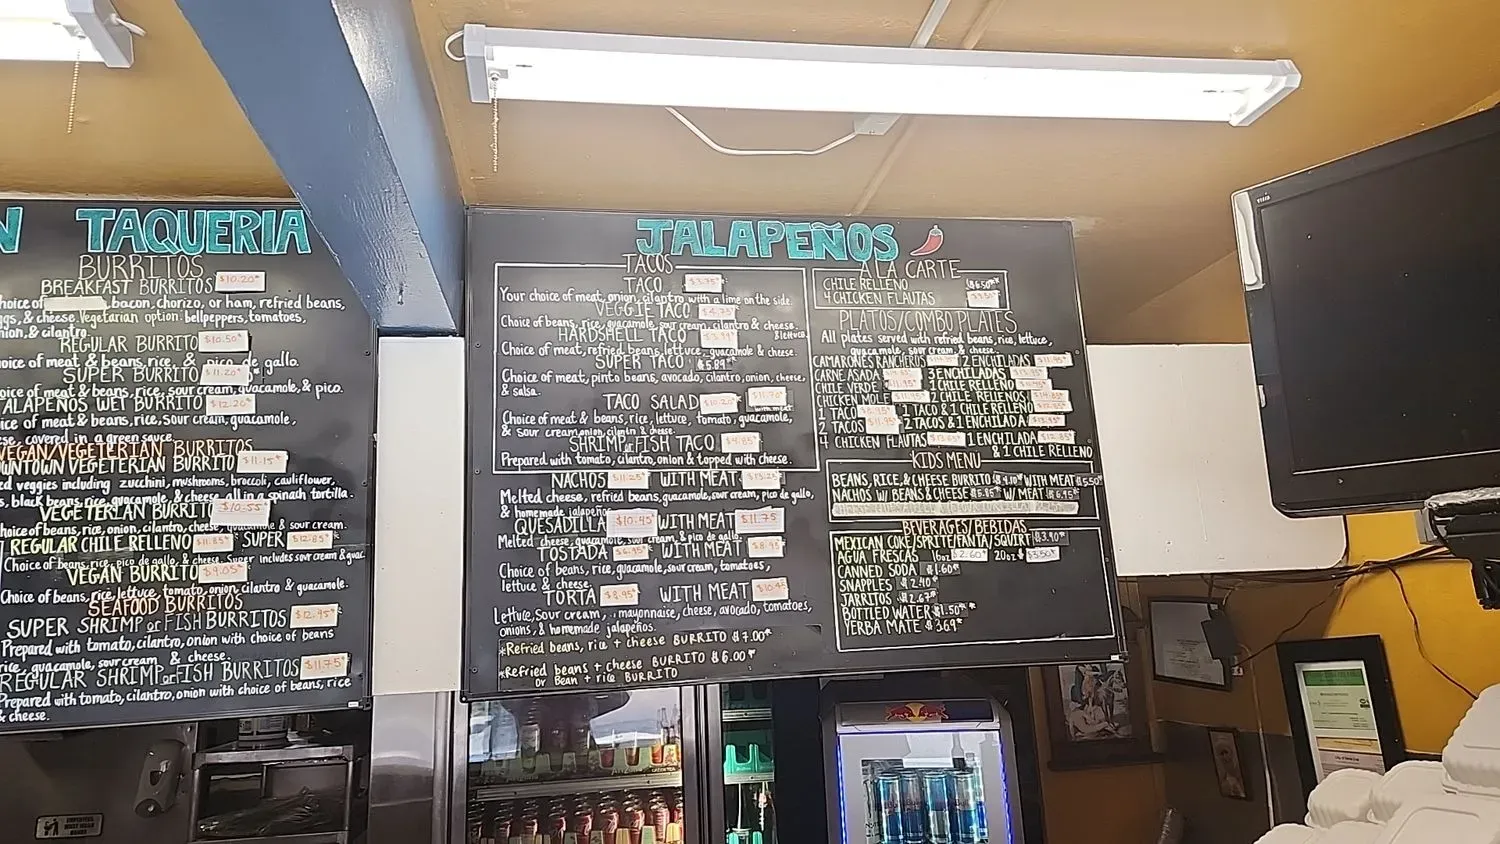 N TAQUERIA
BURRITOS
BREAKFAST BURRITOS $10.20*
hoice of bacon, chorizo, or ham, refried beans,
ggs, & cheese. Vegetarian option: bellpeppers, tomatoes,
nion, & cilantro.
REGULAR BURRITO $10.50*
hoice of meat & beans, rice, & pico de gallo.
SUPER BURRITO $11.20*
oice of meat & beans, rice, sour cream, guacamole, & pico.
ALAPEÑOS WET BURRITO $12.20*
ice of meat & beans, rice, sour cream, guacamole,
ese, covered in a green sauce.
VEGAN/VEGETERIAN BURRITOS
OWNTOWN VEGETERIAN BURRITO $11.15*
ed veggies including zucchini, mushrooms, broccoli, cauliflower,
s, black beans, rice, guacamole, & cheese all in a spinach tortilla.
VEGETERIAN BURRITO $10.55*
hoice of beans, rice, onion, cilantro, cheese, guacamole & sour cream.
REGULAR CHILE RELLENO $11.85* SUPER $12.85*
Choice of beans, rice, pico de gallo, & cheese. Super includes sour cream & guac.
VEGAN BURRITO $9.05*
Choice of beans, rice, lettuce, tomato, onion, cilantro & guacamole.
SEAFOOD BURRITOS
SUPER SHRIMP or FISH BURRITOS $12.95*
Prepared with tomato, cilantro, onion with choice of beans
rice, guacamole, sour cream & cheese.
REGULAR SHRIMP or FISH BURRITOS $11.75*
Prepared with tomato, cilantro, onion with choice of beans, rice
& cheese.
JALAPEÑOS
TACOS
TACO $3.75*
Your choice of meat, onion, cilantro with a lime on the side.
VEGGIE TACO $4.75*
Choice of beans, rice, guacamole, sour cream, cilantro & cheese.
& lettuce.
HARDSHELL TACO
Choice of meat, refried beans, lettuce, guacamole & cheese.
SUPER TACO $5.89*
Choice of meat, pinto beans, avocado, cilantro, onion, cheese,
& salsa.
TACO SALAD $10.20* $11.70*
with meat
Choice of meat & beans, rice, lettuce, tomato, guacamole,
& sour cream, onion, cilantro & cheese.
SHRIMP or FISH TACO $4.85*
Prepared with tomato, cilantro, onion & topped with cheese.
NACHOS $11.25* WITH MEAT $13.25*
Melted cheese, refried beans, guacamole, sour cream, pico de gallo,
& homemade jalapeños.
QUESADILLA $10.45* WITH MEAT $11.75
Melted cheese, guacamole, sour cream, & pico de gallo.
TOSTADA $6.95* WITH MEAT
Choice of beans, rice, guacamole, sour cream, tomatoes,
lettuce & cheese.
TORTA $8.95* WITH MEAT $10.45
Lettuce, sour cream, mayonnaise, cheese, avocado, tomatoes,
onions, & homemade jalapeños.
*Refried beans, rice + cheese BURRITO $7.00*
*Refried beans + cheese BURRITO $6.00*
or Bean + rice BURRITO
A LA CARTE
CHILE RELLENO $6.50*
4 CHICKEN FLAUTAS
PLATOS/COMBO PLATES
All plates served with refried beans, rice, lettuce,
guacamole, sour cream, & cheese.
CAMARONES RANCHEROS 2 ENCHILADAS $11.95*
CARNE ASADA 3 ENCHILADAS
CHILE VERDE 1 CHILE RELLENO
CHICKEN MOLE $11.95* 2 CHILE RELLENOS $14.85*
1 TACO $8.95* 1 TACO & 1 CHILE RELLENO
2 TACOS $11.95* 2 TACOS & 1 ENCHILADA
4 CHICKEN FLAUTAS $13.65* 1 ENCHILADA $12.85
& 1 CHILE RELLENO
KIDS MENU
BEANS, RICE, & CHEESE BURRITO $4.10* WITH MEAT $5.50
NACHOS W/ BEANS & CHEESE W/ MEAT $6.95*
BEVERAGES/BEBIDAS
MEXICAN COKE/SPRITE/FANTA/SQUIRT $3.90*
AGUA FRESCAS 16oz $2.60* 20oz $3.50*
CANNED SODA $1.60*
SNAPPLES $2.40*
JARRITOS $2.67*
BOTTLED WATER $1.50*
YERBA MATE $3.69*